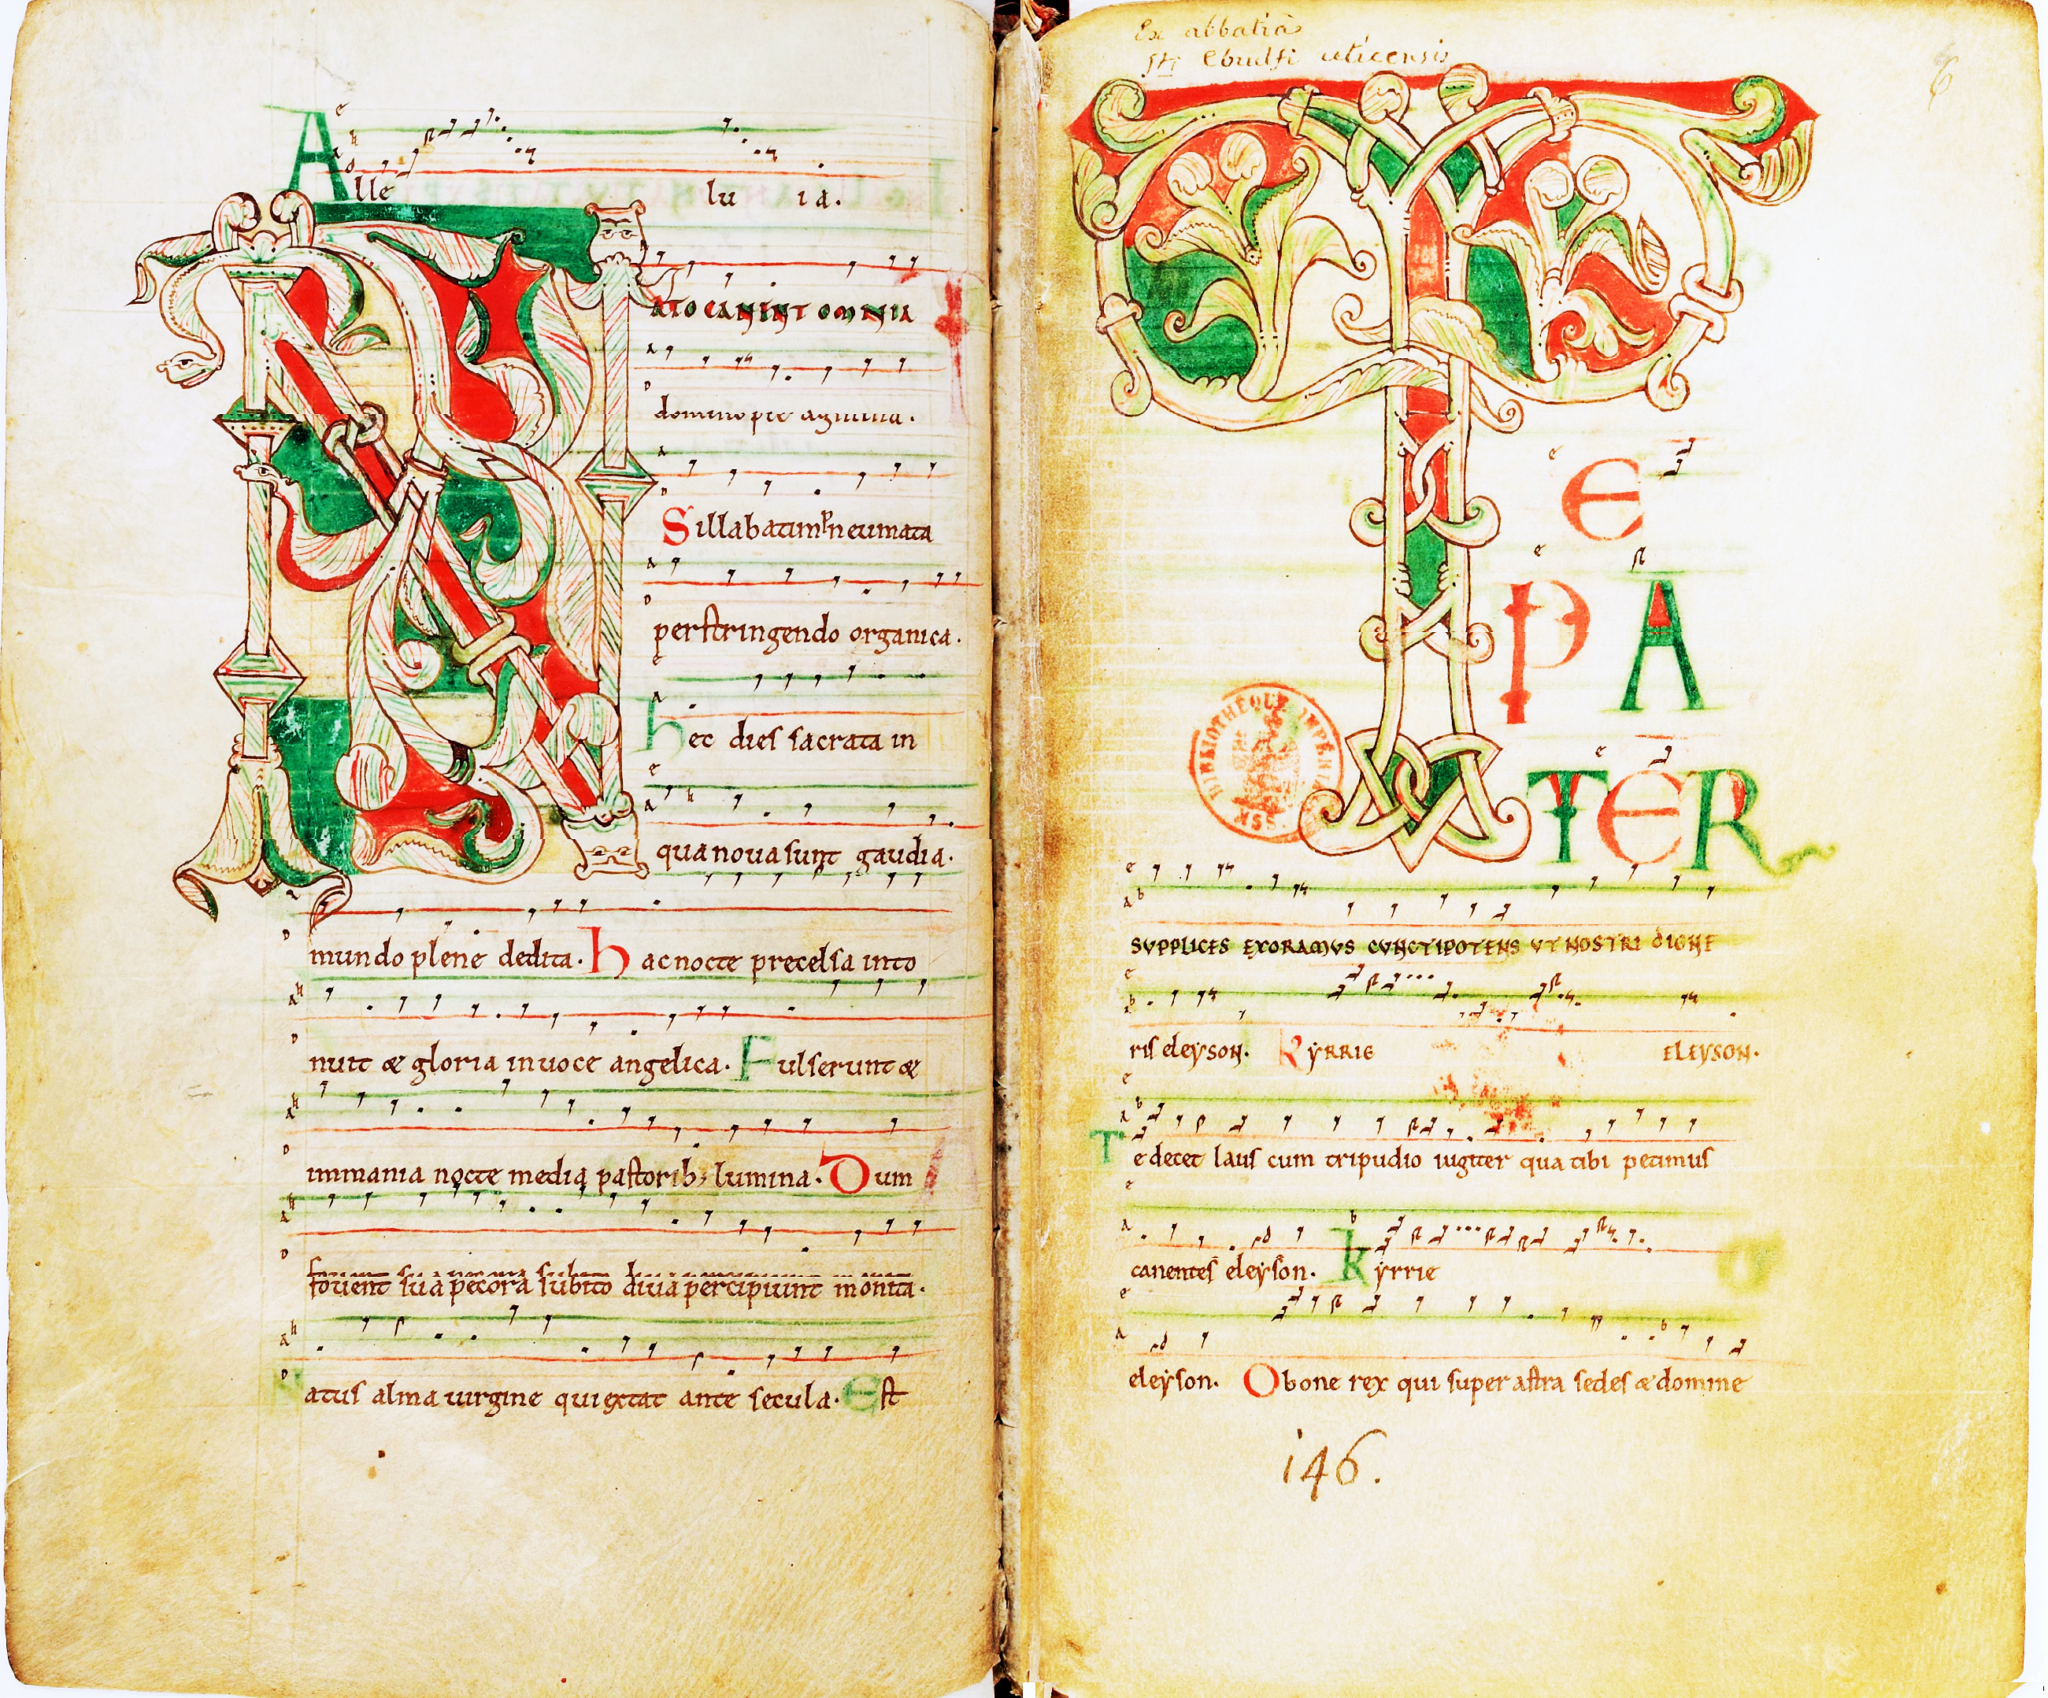 Alle lu ia.
NATO CANINT OMNIA
domino pie agmina.
Sillabatim pneumata
perstringendo organica.
hec dies sacrata in
qua noua sunt gaudia.
mundo plene dedita. hac nocte precelsa into
nuit & gloria in uoce angelica. Fulserunt &
immania nocte media pastorib; lumina. Dum
fouent sua pecora subito diua percipiunt monita.
Natus alma uirgine qui extat ante secula. Est
Ex abbatia
sti Ebrulfi uticensis
6
TE
PA
TER
SVPPLICES EXORAMVS CVNCTIPOTENS VT NOSTRI DIGNE
ris eleyson. KYRRIE ELEYSON.
Te decet laus cum tripudio iugiter qua tibi petimus
canentes eleyson. kyrrie
eleyson. O bone rex qui super astra sedes & domine
BIBLIOTHÈQUE IMPÉRIALE MSS.
146.